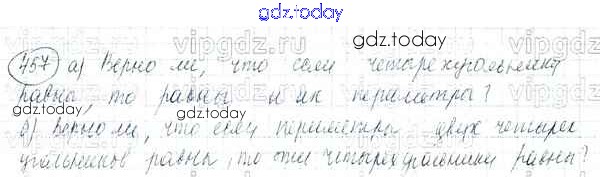 gdz.today
457 а) Верно ли, что если четырехугольники
gdz.today
равны, то равны и их периметры?
gdz.today
б) Верно ли, что если периметры двух четырех
угольников равны, то эти четырехугольники равны?
gdz.today